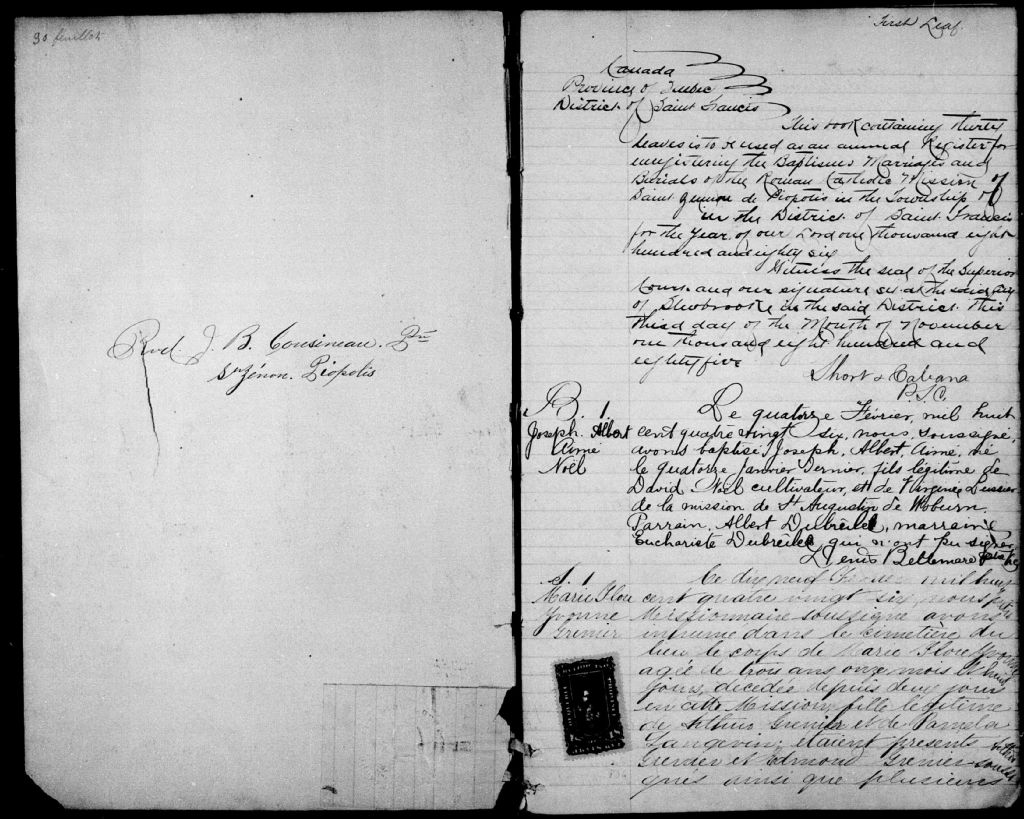 30 feuillets
Rvd. J. B. Cousineau. Ptre
St Zénon. Piopolis
First Leaf.
Canada
Province of Quebec
District of Saint Francis
This book containing thirty
leaves is to be used as an annual Register for
enregistering the Baptisms Marriages and
Burials of the Roman Catholic Mission of
Saint Zenon de Piopolis in the Township of
in the District of Saint Francis
for the Year of our Lord one thousand eight
hundred and eighty six
Witness the seal of the Superior
Court and our signature at the said City
of Sherbrooke in the said District this
third day of the Month of November
one thousand eight hundred and
eighty five
Short & Cabana
P.S.C.
B. 1
Joseph Albert
Aimé
Noël
Le quatorze Février, mil huit
cent quatre vingt six, nous, soussigné,
avons baptisé Joseph, Albert, Aimé, né
le quatorze Janvier dernier, fils légitime de
David Noël cultivateur, et de Virginie Lussier
de la mission de St Augustin de Woburn.
Parrain, Albert Dubreile, marraine
Euchariste Dubreile, qui n'ont pu signer
Denis Bellemare ptre
S. 1
Marie Flore
Yvonne
Grenier
Ce dix neuf Février mil huit
cent quatre vingt six, nous ptre
Missionnaire soussigné avons
inhumé dans le cimetière du
lieu le corps de Marie Flore Yvonne
agée de trois ans onze mois et huit
jours, décédée depuis deux jours
en cette Mission, fille légitime
de Arthur Grenier et de Pamela
Langevin; étaient présents Arthur
Grenier et Edmond Grenier soussi
gnés ainsi que plusieurs